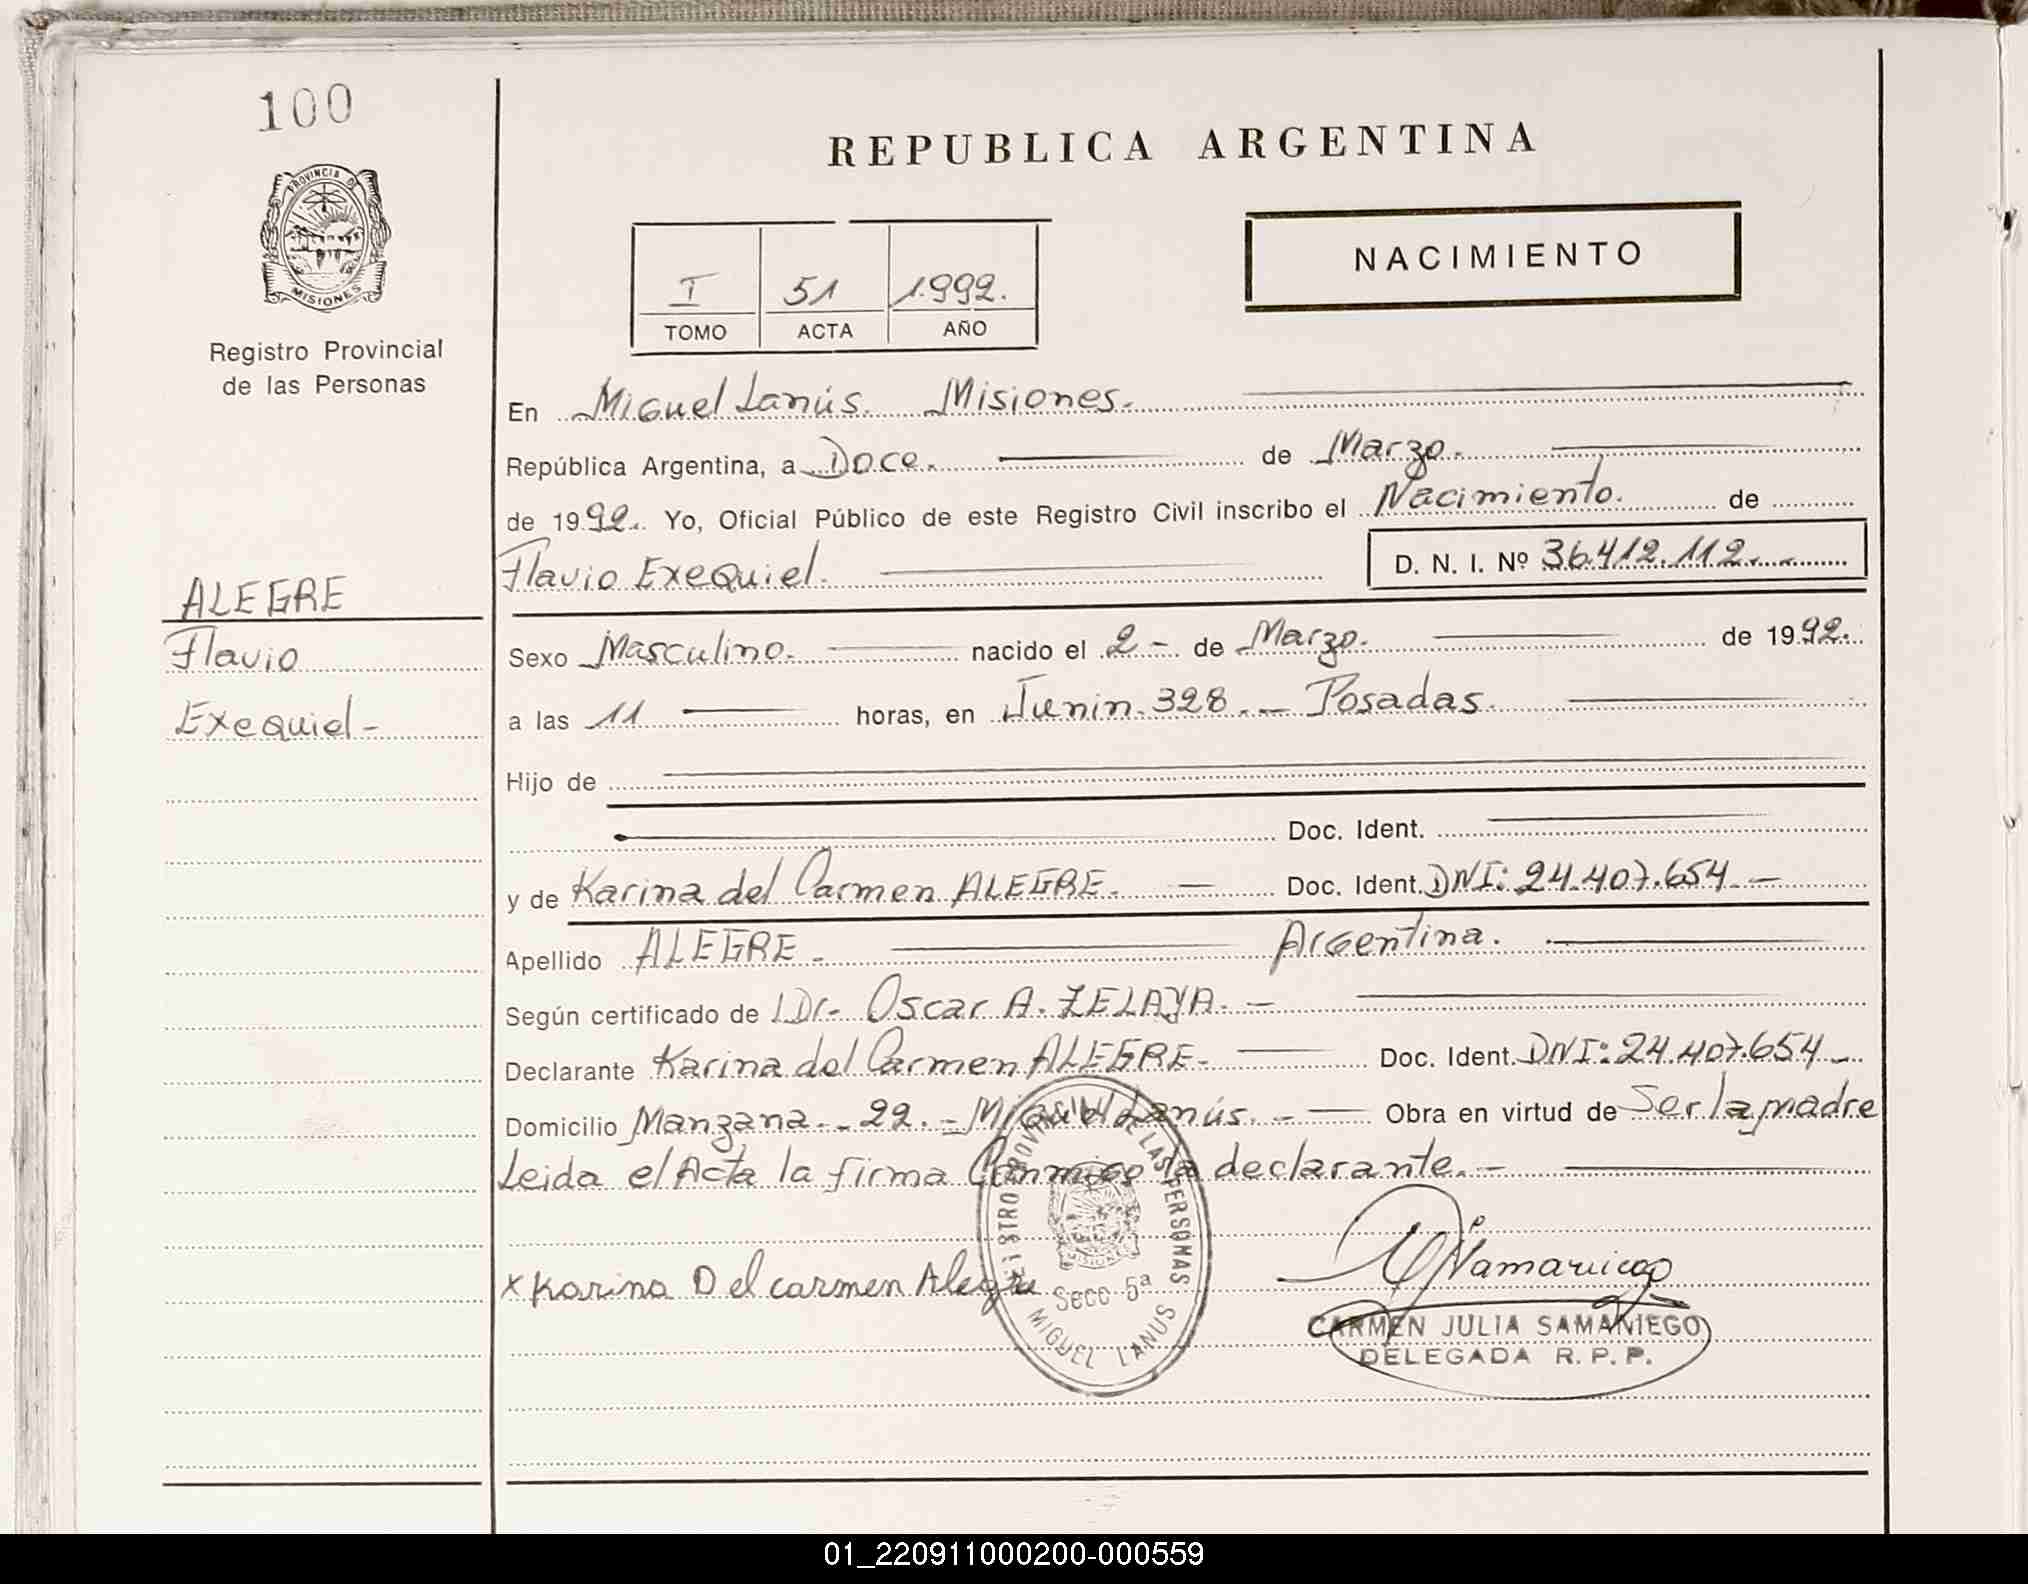 100
REPUBLICA ARGENTINA
PROVINCIA DE
MISIONES
Registro Provincial
de las Personas
NACIMIENTO
I 51 1.992.
TOMO ACTA AÑO
En Miguel Lanús. Misiones.
República Argentina, a Doce. de Marzo.
de 1992. Yo, Oficial Público de este Registro Civil inscribo el Nacimiento. de
Flavio Exequiel. D. N. I. Nº 36.412.112.-
ALEGRE
Flavio
Exequiel-
Sexo Masculino.- nacido el 2 - de Marzo. de 1992.
a las 11 horas, en Junin 328.- Posadas.
Hijo de
Doc. Ident.
y de Karina del Carmen ALEGRE. - Doc. Ident. DNI: 24.407.654.-
Apellido ALEGRE.- Argentina.
Según certificado de Dr. Oscar A. ZELAYA.-
Declarante Karina del Carmen ALEGRE.- Doc. Ident. DNI: 24.407.654.-
Domicilio Manzana.- 22.- Miguel Lanús.- Obra en virtud de Ser la madre
Leida el Acta la firma Conmigo la declarante.-
x Karina Del carmen Alegre
REGISTRO PROVINCIAL DE LAS PERSONAS
MISIONES
Secc 5ª
MIGUEL LANUS
CARMEN JULIA SAMANIEGO
DELEGADA R.P.P.
01_220911000200-000559